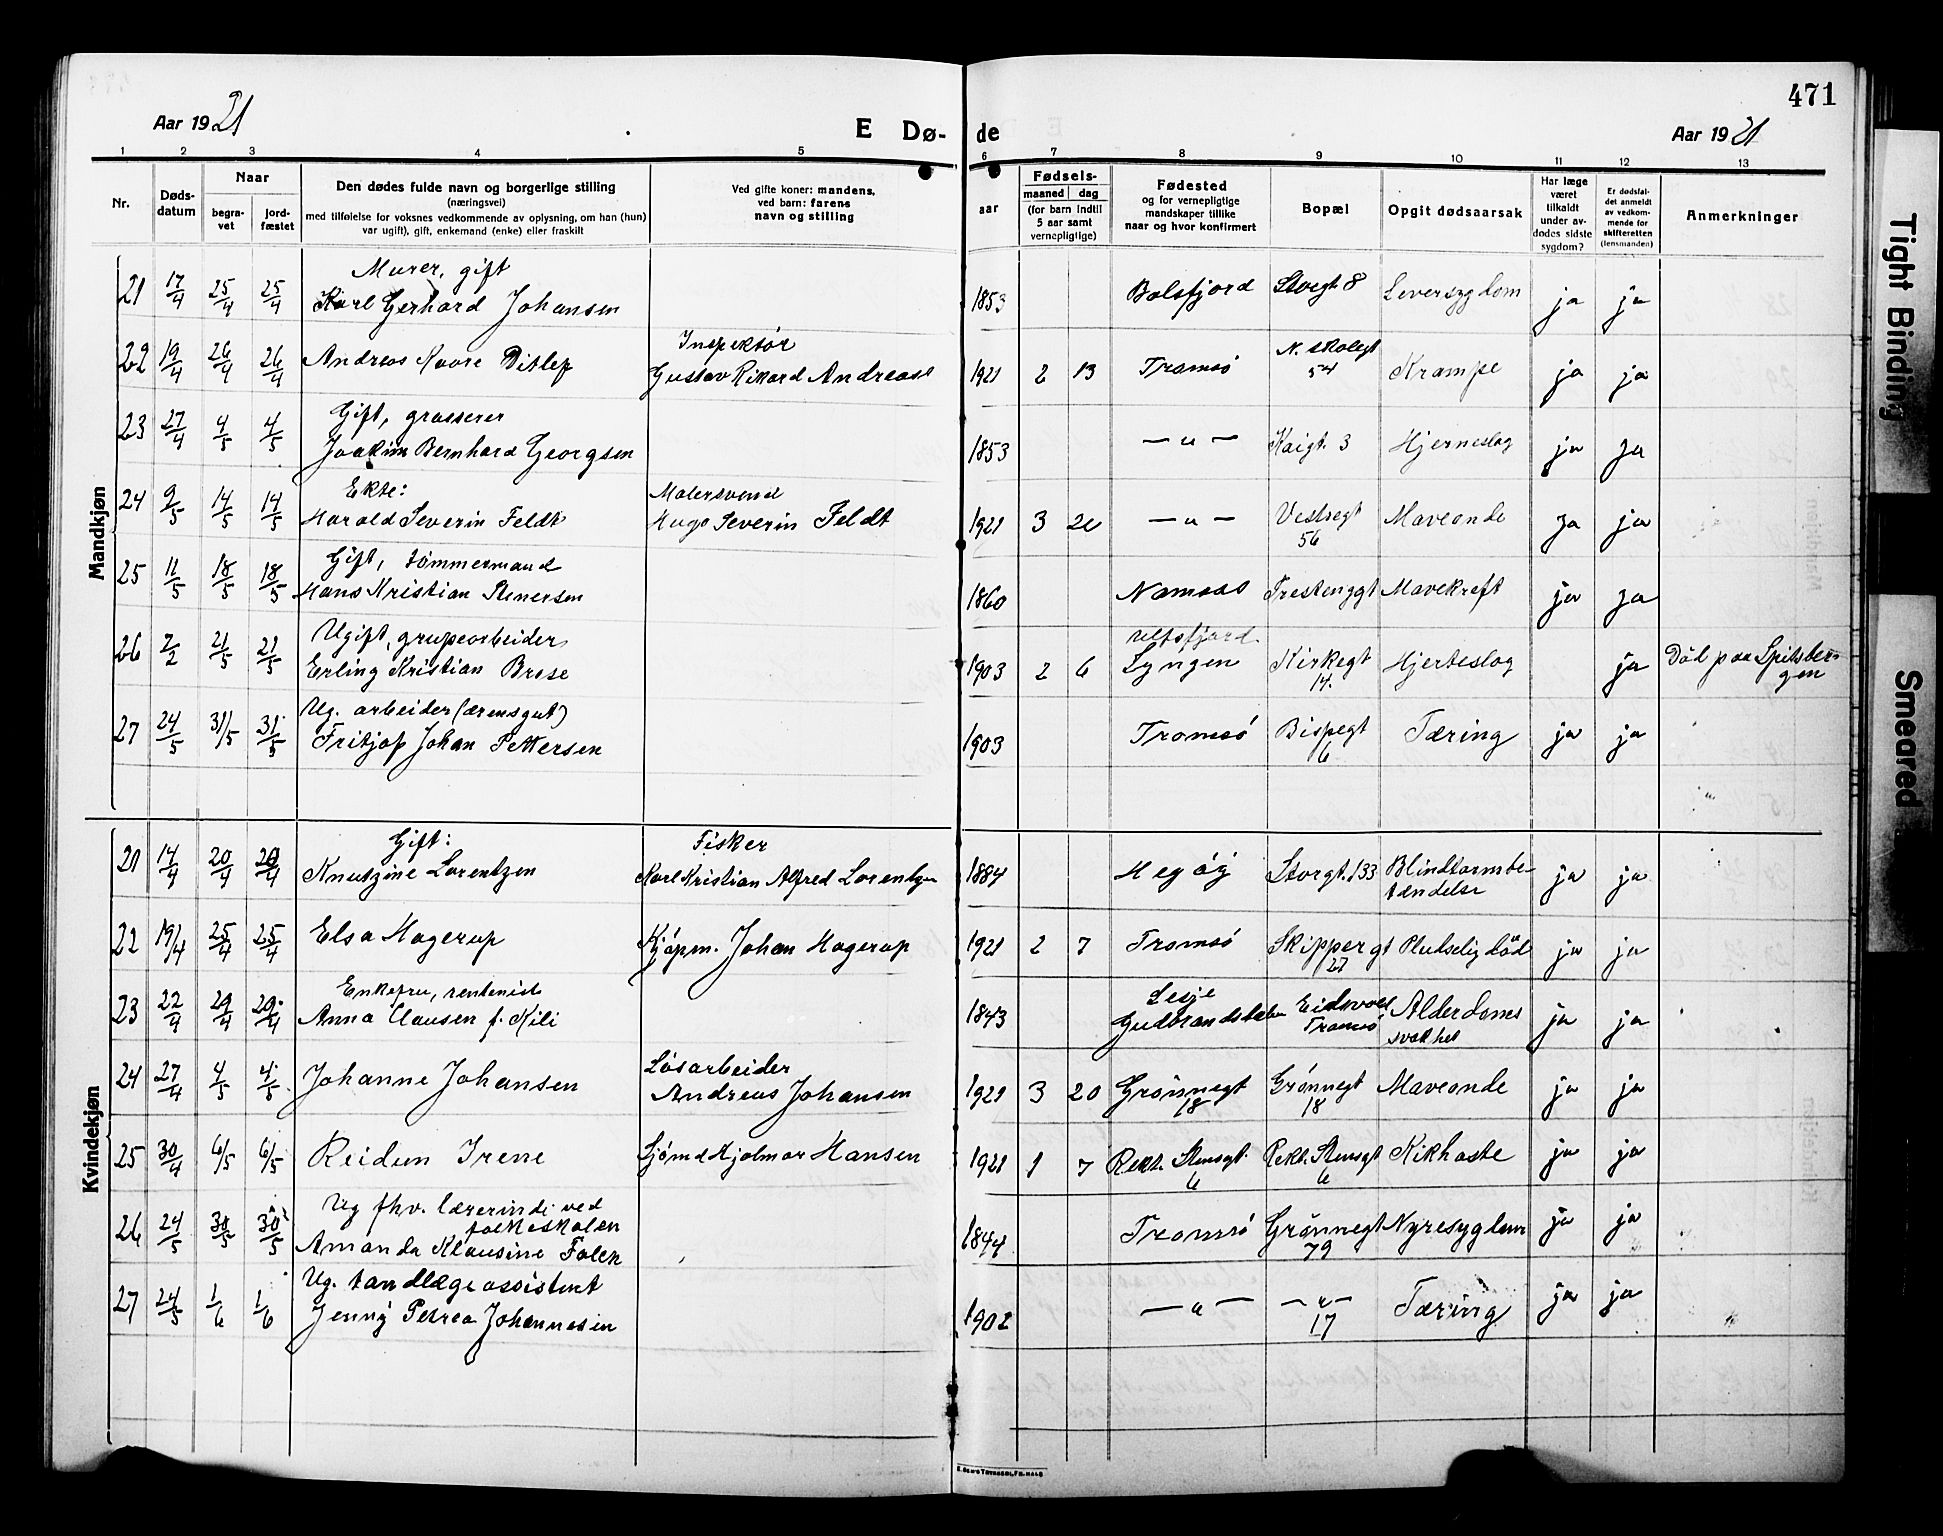 471
Aar 1921
E Dø-
de
Aar 1921
1 2 3 4 5 6 7 8 9 10 11 12 13
Nr.
Døds-
datum
Naar
begra-
vet
jord-
fæstet
Den dødes fulde navn og borgerlige stilling
(næringsvei)
med tilføielse for voksnes vedkommende av oplysning, om han (hun)
var ugift), gift, enkemand (enke) eller fraskilt
Ved gifte koner: mandens,
ved barn: farens
navn og stilling
aar
Fødsels-
maaned dag
(for barn indtil
5 aar samt
vernepligtige)
Fødested
og for vernepligtige
mandskaper tillike
naar og hvor konfirmert
Bopæl
Opgit dødsaarsak
Har læge
været
tilkaldt
under av-
dødes sidste
sygdom?
Er dødsfal-
det anmeldt
av vedkom-
mende for
skifteretten
(lensmanden)
Anmerkninger
Mandkjøn
Murer, gift
21 17/4 25/4 25/4 Karl Gerhard Johansen 1853 Balsfjord Storgt 8 Leversygdom ja ja
Inspektør
22 19/4 26/4 26/4 Andreas Kaare Ditlef Gustav Rikard Andreas 1921 2 13 Tromsø N. skolegt 54 Krampe ja ja
Gift, grosserer
23 27/4 4/5 4/5 Joakim Bernhard Georgsen 1853 — " — Kaigt. 3 Hjerneslag ja ja
Ekte: Malersvend
24 9/5 14/5 14/5 Harald Severin Feldt Hugo Severin Feldt 1921 3 20 — " — Vestregt 56 Maveonde ja ja
Gift, tømmermand
25 11/5 18/5 18/5 Hans Kristian Stenersen 1860 Namsos Trestenggt Mavekreft ja ja
Ugift, grupearbeider Ulfsfjord
26 2/2 21/5 21/5 Erling Kristian Brose 1903 2 6 Lyngen Kirkegt 14. Hjerteslag ja Död paa Spitsber-
gen
Ug. arbeider (ærensgut)
27 24/5 31/5 31/5 Fritjof Johan Pettersen 1903 Tromsø Bispegt 6 Tæring ja ja
Kvindekjøn
Gift: Fisker
21 14/4 20/4 20/4 Knutzine Lorentzen Karl Kristian Alfred Lorentzen 1884 Storgt. 133 Blindtarmbe-
tændelse ja ja
22 19/4 25/4 25/4 Elsa Hagerup Kjøpm. Johan Hagerup 1921 2 7 Tromsø Skippergt 27 Plutselig död ja ja
Enkefru, rentenist Lesje
23 22/4 29/4 29/4 Anna Clausen f. Kili 1843 Gudbrandsdalen Eidsvold Tromsø Alderdoms
svakhet ja ja
Løsarbeider
24 27/4 4/5 4/5 Johanne Johansen Andreas Johansen 1921 3 20 Grønnegt 18 Grønnegt 18 Maveonde ja ja
25 30/4 6/5 6/5 Reidun Irene Sjømd Hjalmar Hansen 1921 1 7 Rekt. Stensgt. 6 Rekt. Stensgt 6 Kikhoste ja ja
Ug fhv. lærerinde ved
folkeskolen
26 24/5 30/5 30/5 Amanda Klausine Falck 1844 Tromsø Grønnegt 79 Nyresygdom ja ja
Ug. tandlægeassistent
27 24/5 1/6 1/6 Jenny Petrea Johannesen 1902 — " — — " — 17 Tæring ja ja
Tight Binding
Smeared